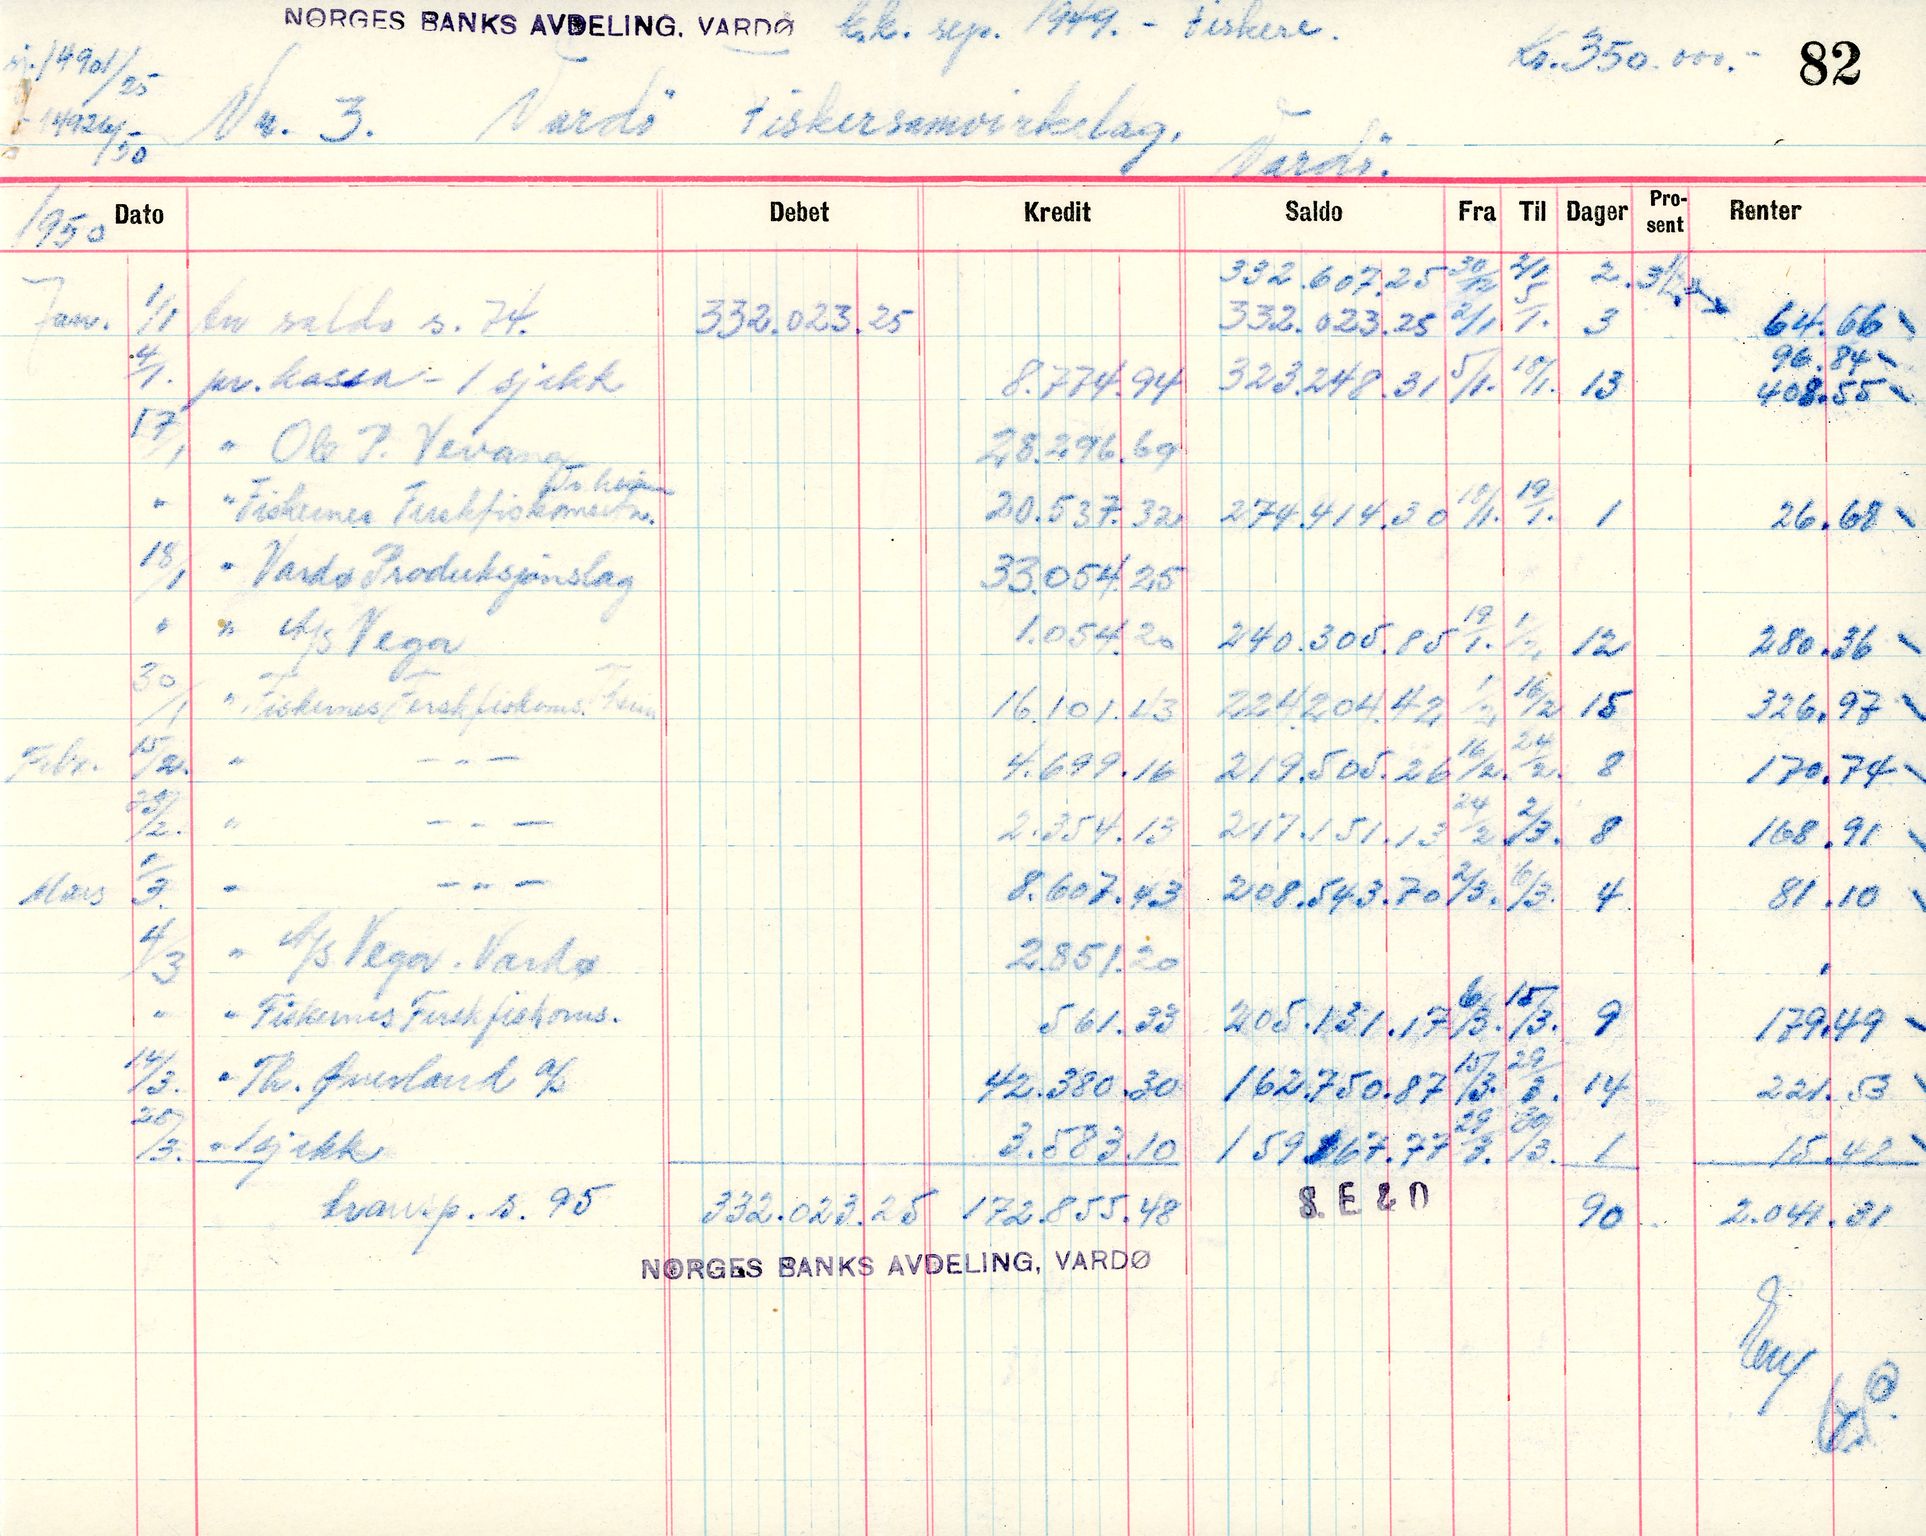 NORGES BANKS AVDELING, VARDØ k.k. sep. 1949. - Fiskere. Kr. 350.000.- 82
14901/25
14926/50
Nr. 3. Vardö Fiskersamvirkelag, Vardö.
1950 Dato Debet Kredit Saldo Fra Til Dager Pro-sent Renter
332.607.25 30/12 2/1 2 3 1/2 64.66
Jan. 1/1 An saldo s. 74. 332.023.25 332.023.25 2/1 5/1. 3 96.84
4/1. pr. kassa - 1 sjekk 8.774.94 323.248.31 5/1. 18/1. 13 408.55
17/1 " Ole P. Vevang 28.296.69
" " Fiskernes Ferskfiskomsetn. Tr.heim 20.537.32 274.414.30 18/1. 19/1. 1 26.68
18/1 " Vardø Produksjonslag 33.054.25
" " A/S Vega 1.054.20 240.305.85 19/1. 1/2 12 280.36
30/1 " Fiskernes Ferskfiskoms. Tr.heim 16.101.43 224.204.42 1/2 16/2 15 326.97
Febr. 15/2. " - " - 4.699.16 219.505.26 16/2. 24/2. 8 170.74
23/2. " - " - 2.354.13 217.151.13 24/2 2/3. 8 168.91
Mars 1/3. " - " - 8.607.43 208.543.70 2/3. 6/3. 4 81.10
4/3 " A/S Vega. Vardø 2.851.20
" " Fiskernes Ferskfiskoms. 561.33 205.131.17 6/3. 15/3. 9 179.49
14/3. " Th. Øverland A/S 42.380.30 162.750.87 15/3. 29/3. 14 221.53
28/3. " 1 sjekk 3.583.10 159.167.77 29/3. 30/3. 1 15.48
transp. s. 95 332.023.25 172.855.48 S. E & O 90 2.041.31
NORGES BANKS AVDELING, VARDØ